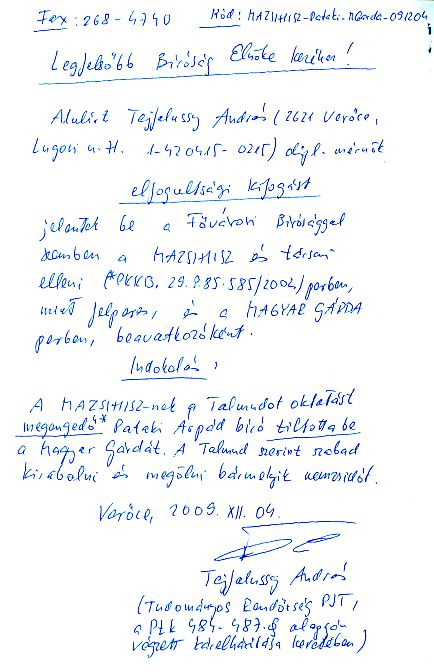 Fax: 268-4740 Kód: MAZSIHISZ-Pataki-MGárda-091204
Legfelsőbb Bíróság Elnöke kezéhez!
Alulírt Tejfalussy András (2621 Verőce,
Lugosi u. 71. 1-420415-0215) dipl. mérnök
elfogultsági kifogást
jelentek be a Fővárosi Bírósággal
szemben a MAZSIHISZ és társai
elleni (*PKKB. 29.P.85.585/2002) perben,
mint felperes, és a MAGYAR GÁRDA
perben, beavatkozóként.
Indokolás:
A MAZSIHISZ-nek a Talmudot oktatást
megengedő* Pataki Árpád bíró tiltotta be
a Magyar Gárdát. A Talmud szerint szabad
kirabolni és megölni bármelyik nemzsidót.
Verőce, 2009. XII. 04.
Tejfalussy András
(Tudományos Rendőrség PJT,
a Ptk 484-487.§ alapján
végzett kárelhárítása keretében)